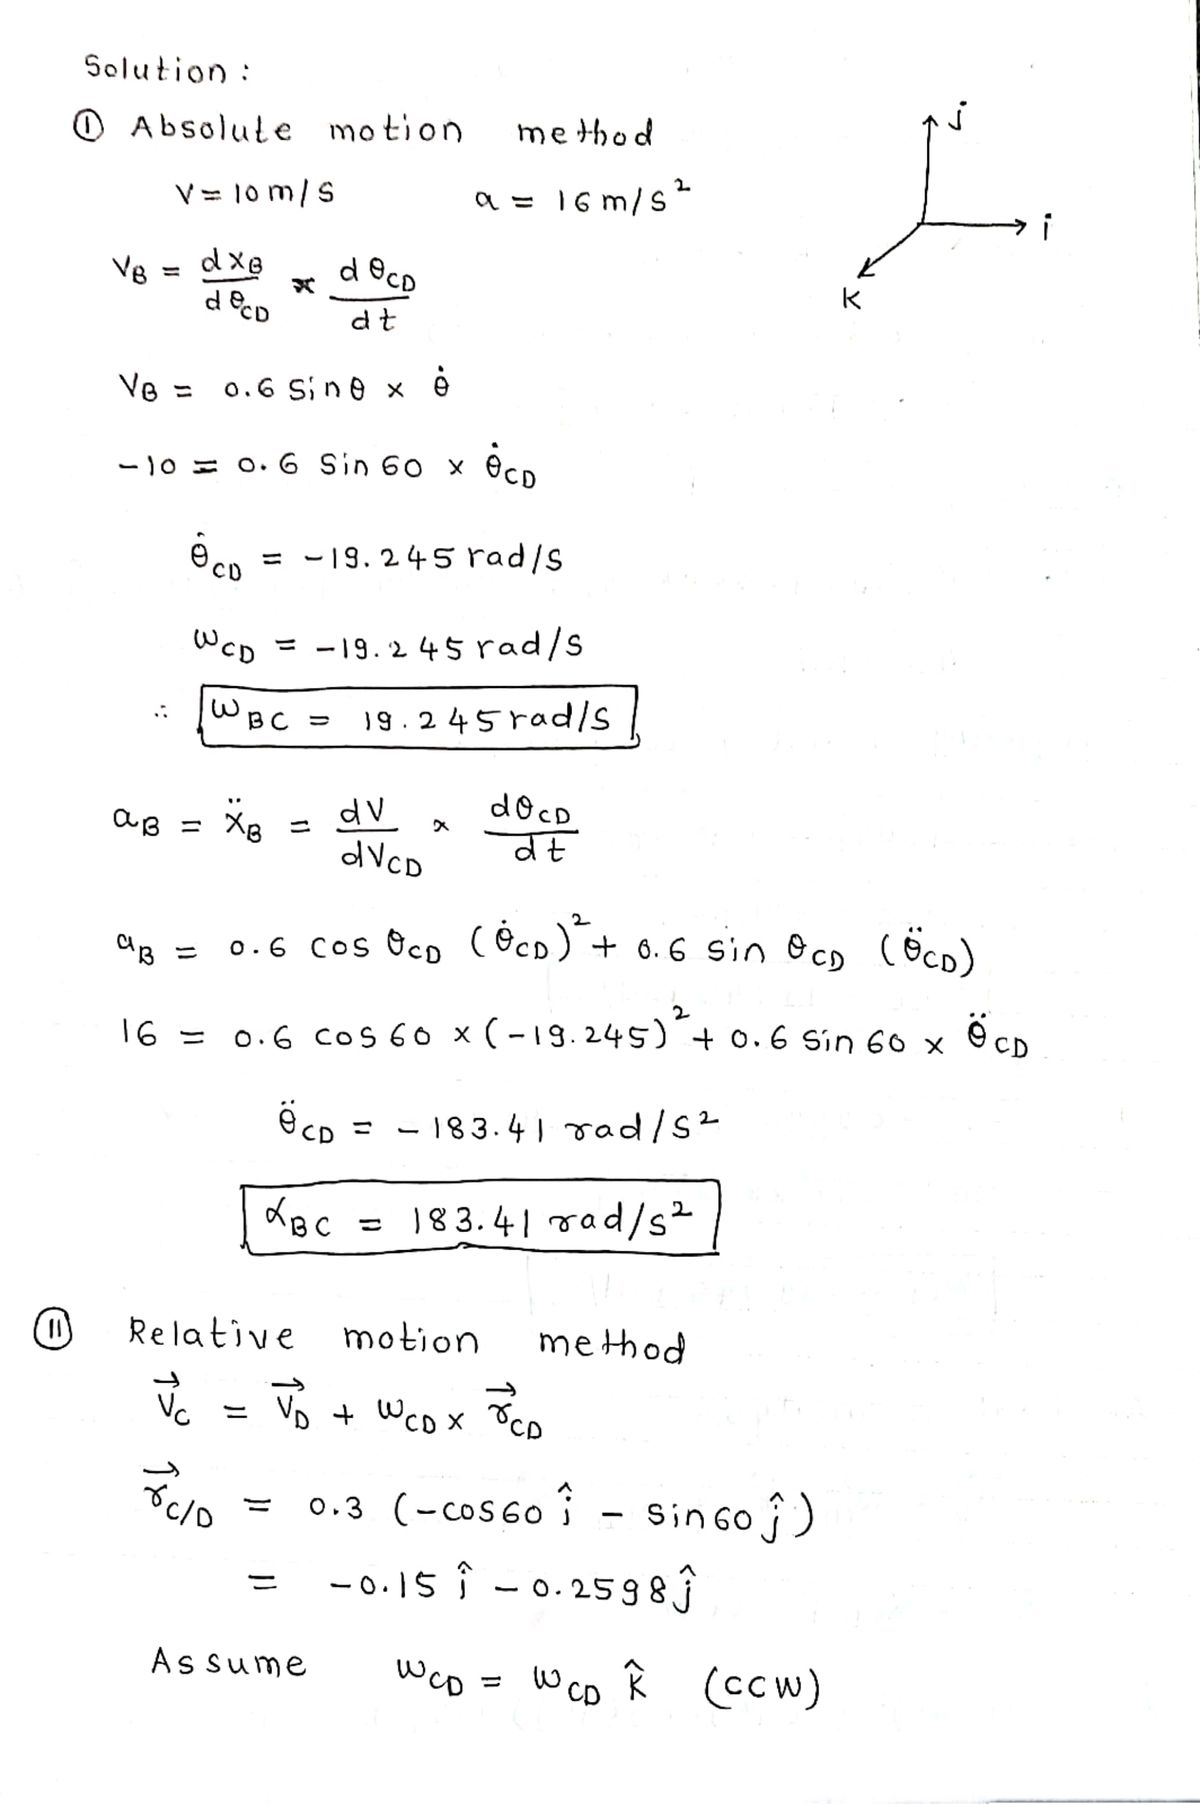 Solution :
① Absolute motion method
j
V = 10 m/s a = 16 m/s²
i
k
V_B = dx_B/dθ_CD × dθ_CD/dt
V_B = 0.6 Sin θ × θ̇
-10 = 0.6 Sin 60 × θ̇_CD
θ̇_CD = -19.245 rad/s
ω_CD = -19.245 rad/s
∴ ω_BC = 19.245 rad/s
a_B = ẍ_B = dV/dV_CD × dθ_CD/dt
a_B = 0.6 cos θ_CD (θ̇_CD)² + 0.6 sin θ_CD (θ̈_CD)
16 = 0.6 cos 60 × (-19.245)² + 0.6 Sin 60 × θ̈_CD
θ̈_CD = - 183.41 rad/s²
α_BC = 183.41 rad/s²
⑪ Relative motion method
V⃗_C = V⃗_D + ω_CD × r⃗_CD
r⃗_C/D = 0.3 (-cos60 î - sin60 ĵ)
= -0.15 î - 0.2598 ĵ
Assume ω_CD = ω_CD k̂ (ccw)